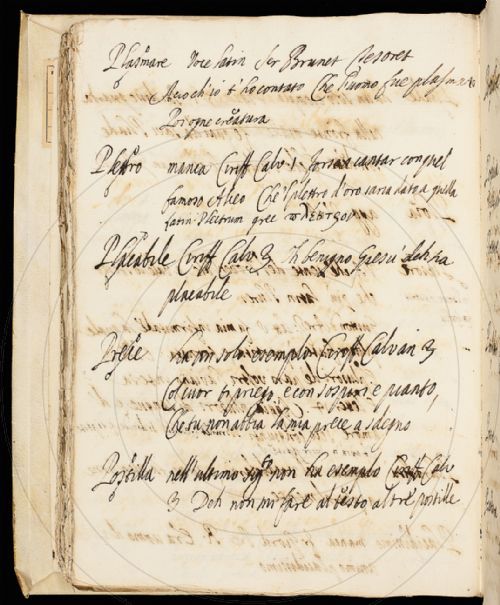 Plasmare Voce latin Ser Brunet Tesoret
Acioch io t'ho contato Che l'uomo fue plasmato
Por ogne creatura
Plettro manca Ciriff Calv 1. forsi a cantar con quel
famoso Alceo Che 'l plettro d'oro saria dato a quella
latin. Plectrum grec πλέκτρον
Placabile Ciriff Calv 3 Il benigno Giesù
placabile
Prece ha un solo esemplo Ciriff Calvan 3
Col cuor ti priego, e con sospiri e pianto,
Che tu non abbia la mia prece a sdegno
Postilla nell'ultimo sig.º non ha esemplo Ciriff Calv
3 Deh non mi fare al testo altre postille